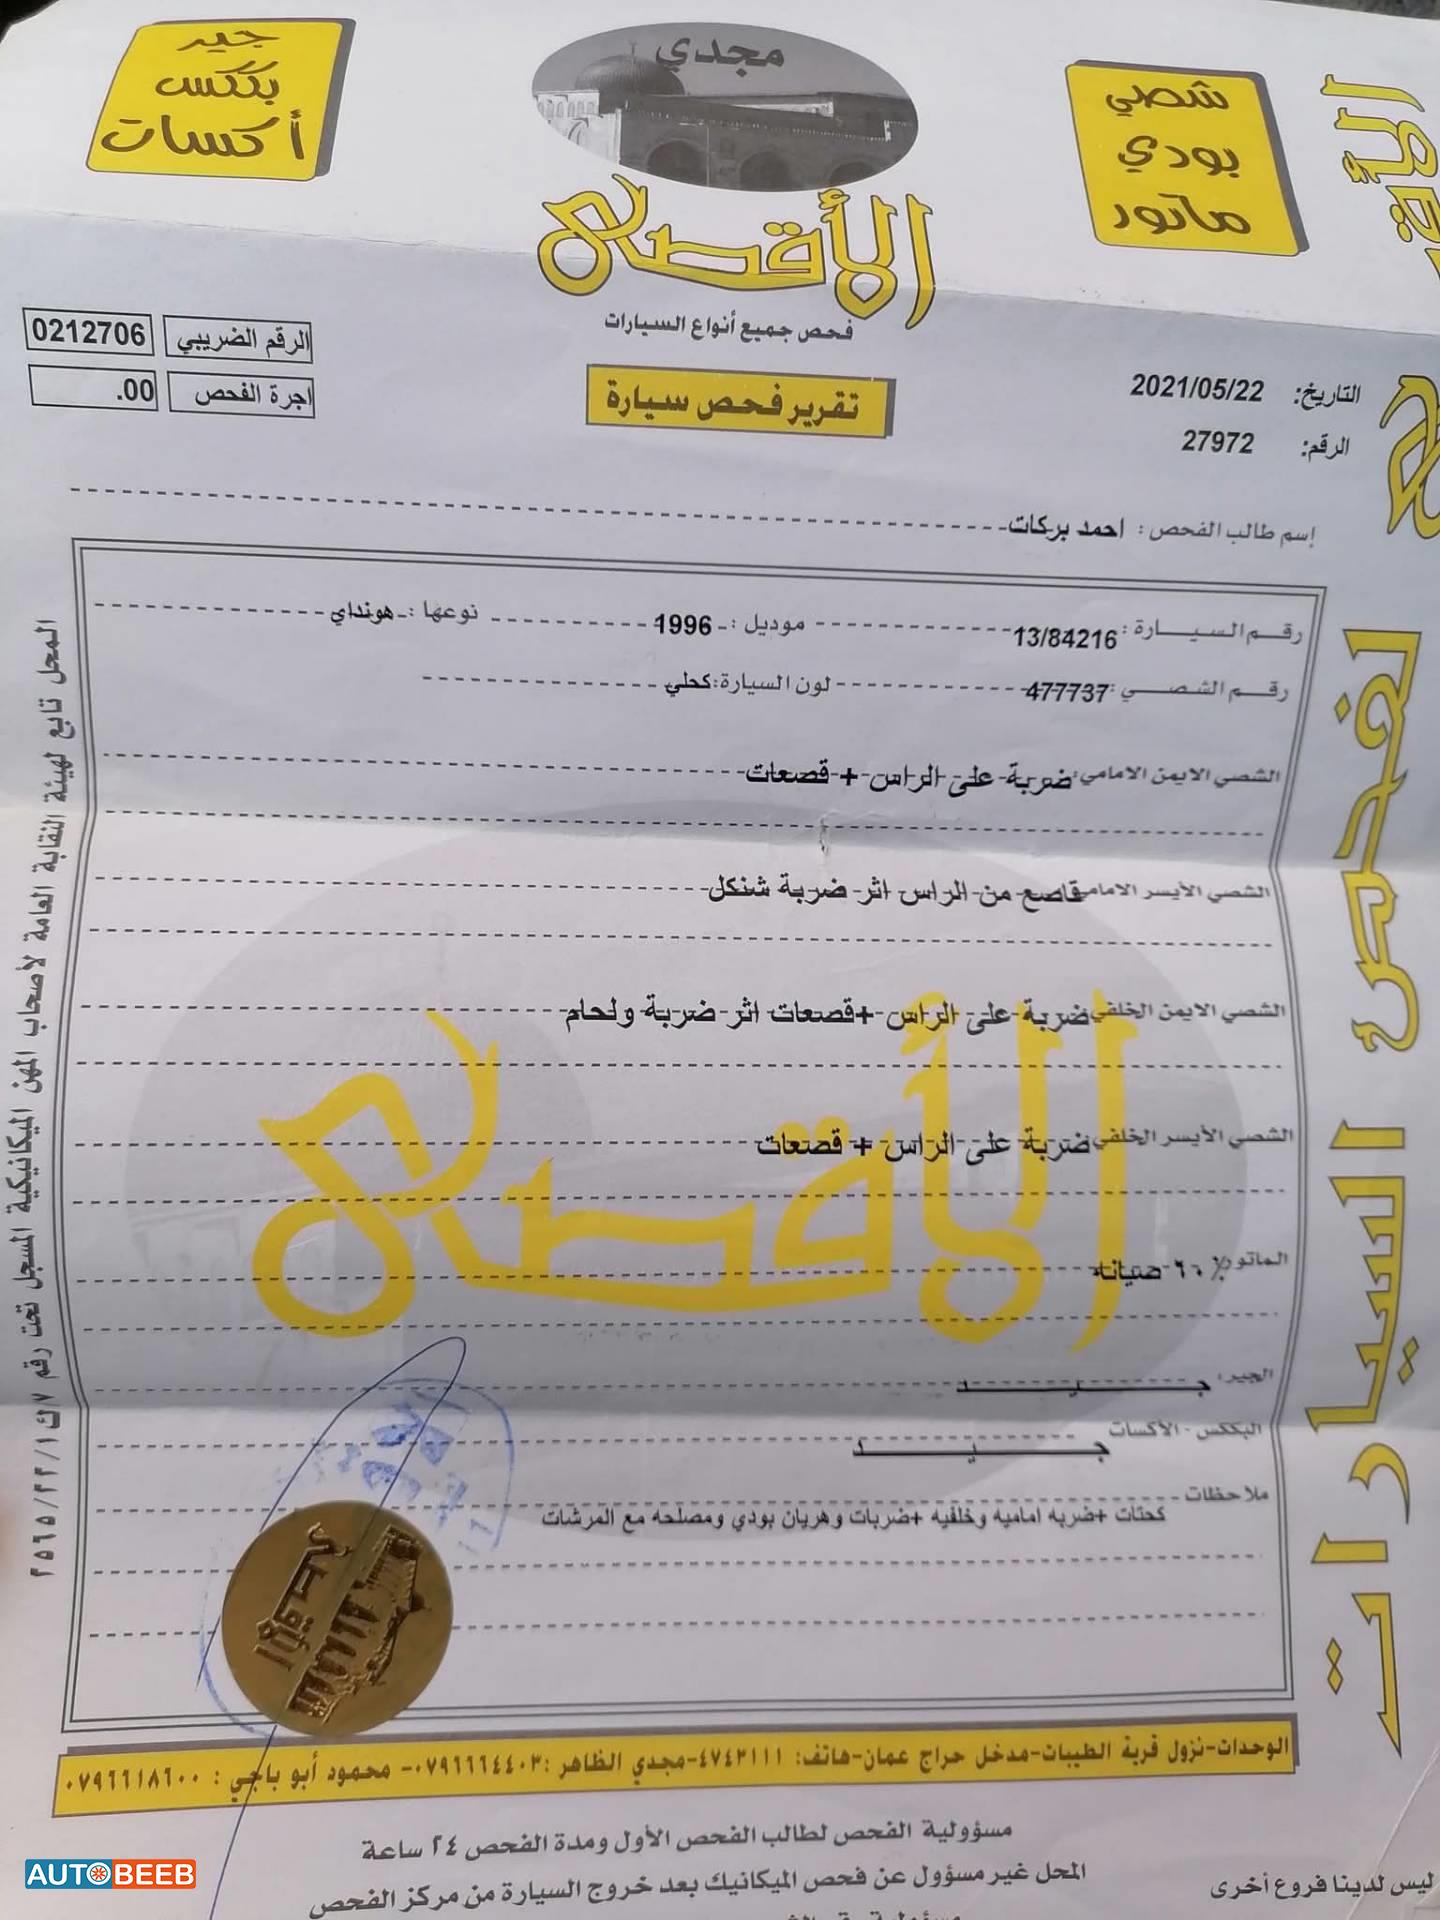 جير
بككس
أكسات
مجدي
الأقصى
فحص جميع أنواع السيارات
تقرير فحص سيارة
شصي
بودي
ماتور
الرقم الضريبي 0212706
اجرة الفحص .00
التاريخ: 2021/05/22
الرقم: 27972
إسم طالب الفحص : احمد بركات
رقم السيارة : 13/84216 موديل : 1996 نوعها : هونداي
رقم الشصي : 477737 لون السيارة : كحلي
الشصي الايمن الامامي : ضربة على الراس + قصعات
الشصي الأيسر الامامي قاصع من الراس اثر ضربة شنكل
الشصي الايمن الخلفي ضربة على الراس +قصعات اثر ضربة ولحام
الشصي الأيسر الخلفي ضربة على الراس + قصعات
الماتور ٦٠٪ صيانه
الجير : جيد
البككس - الأكسات جيد
ملاحظات
كحتات +ضربه اماميه وخلفيه +ضربات وهريان بودي ومصلحه مع المرشات
الأقصى
الأقصى
لفحص السيارات
المحل تابع لهيئة النقابة العامة لأصحاب المهن الميكانيكية المسجل تحت رقم ٧/ك١/٢٢/٢٥٦٥
الوحدات-نزول قرية الطيبات-مدخل حراج عمان-هاتف: ٤٧٤٣١١١-مجدي الظاهر :٠٧٩٦٦٦٤٤٠٣- محمود أبو باجي : ٠٧٩٦٦١٨٦٠٠
مسؤولية الفحص لطالب الفحص الأول ومدة الفحص ٢٤ ساعة
المحل غير مسؤول عن فحص الميكانيك بعد خروج السيارة من مركز الفحص
ليس لدينا فروع أخرى
AUTOBEEB